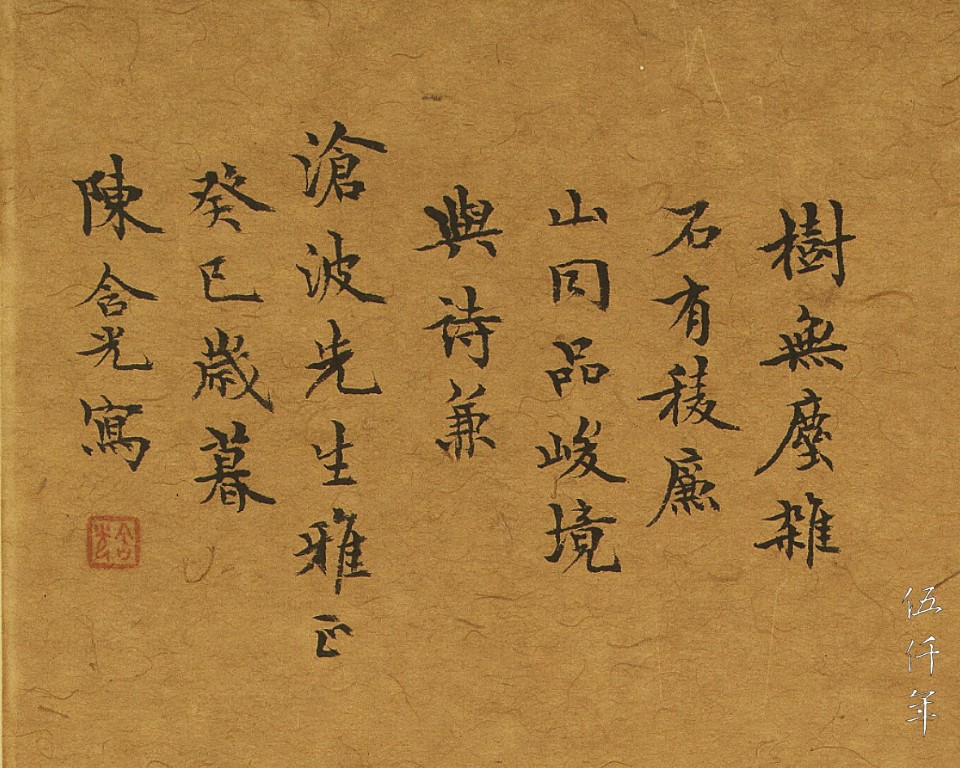 樹無塵雜
石有稜廉
山同品峻境
與詩兼
滄波先生雅正
癸巳歲暮
陳含光寫
含光
伍仟年